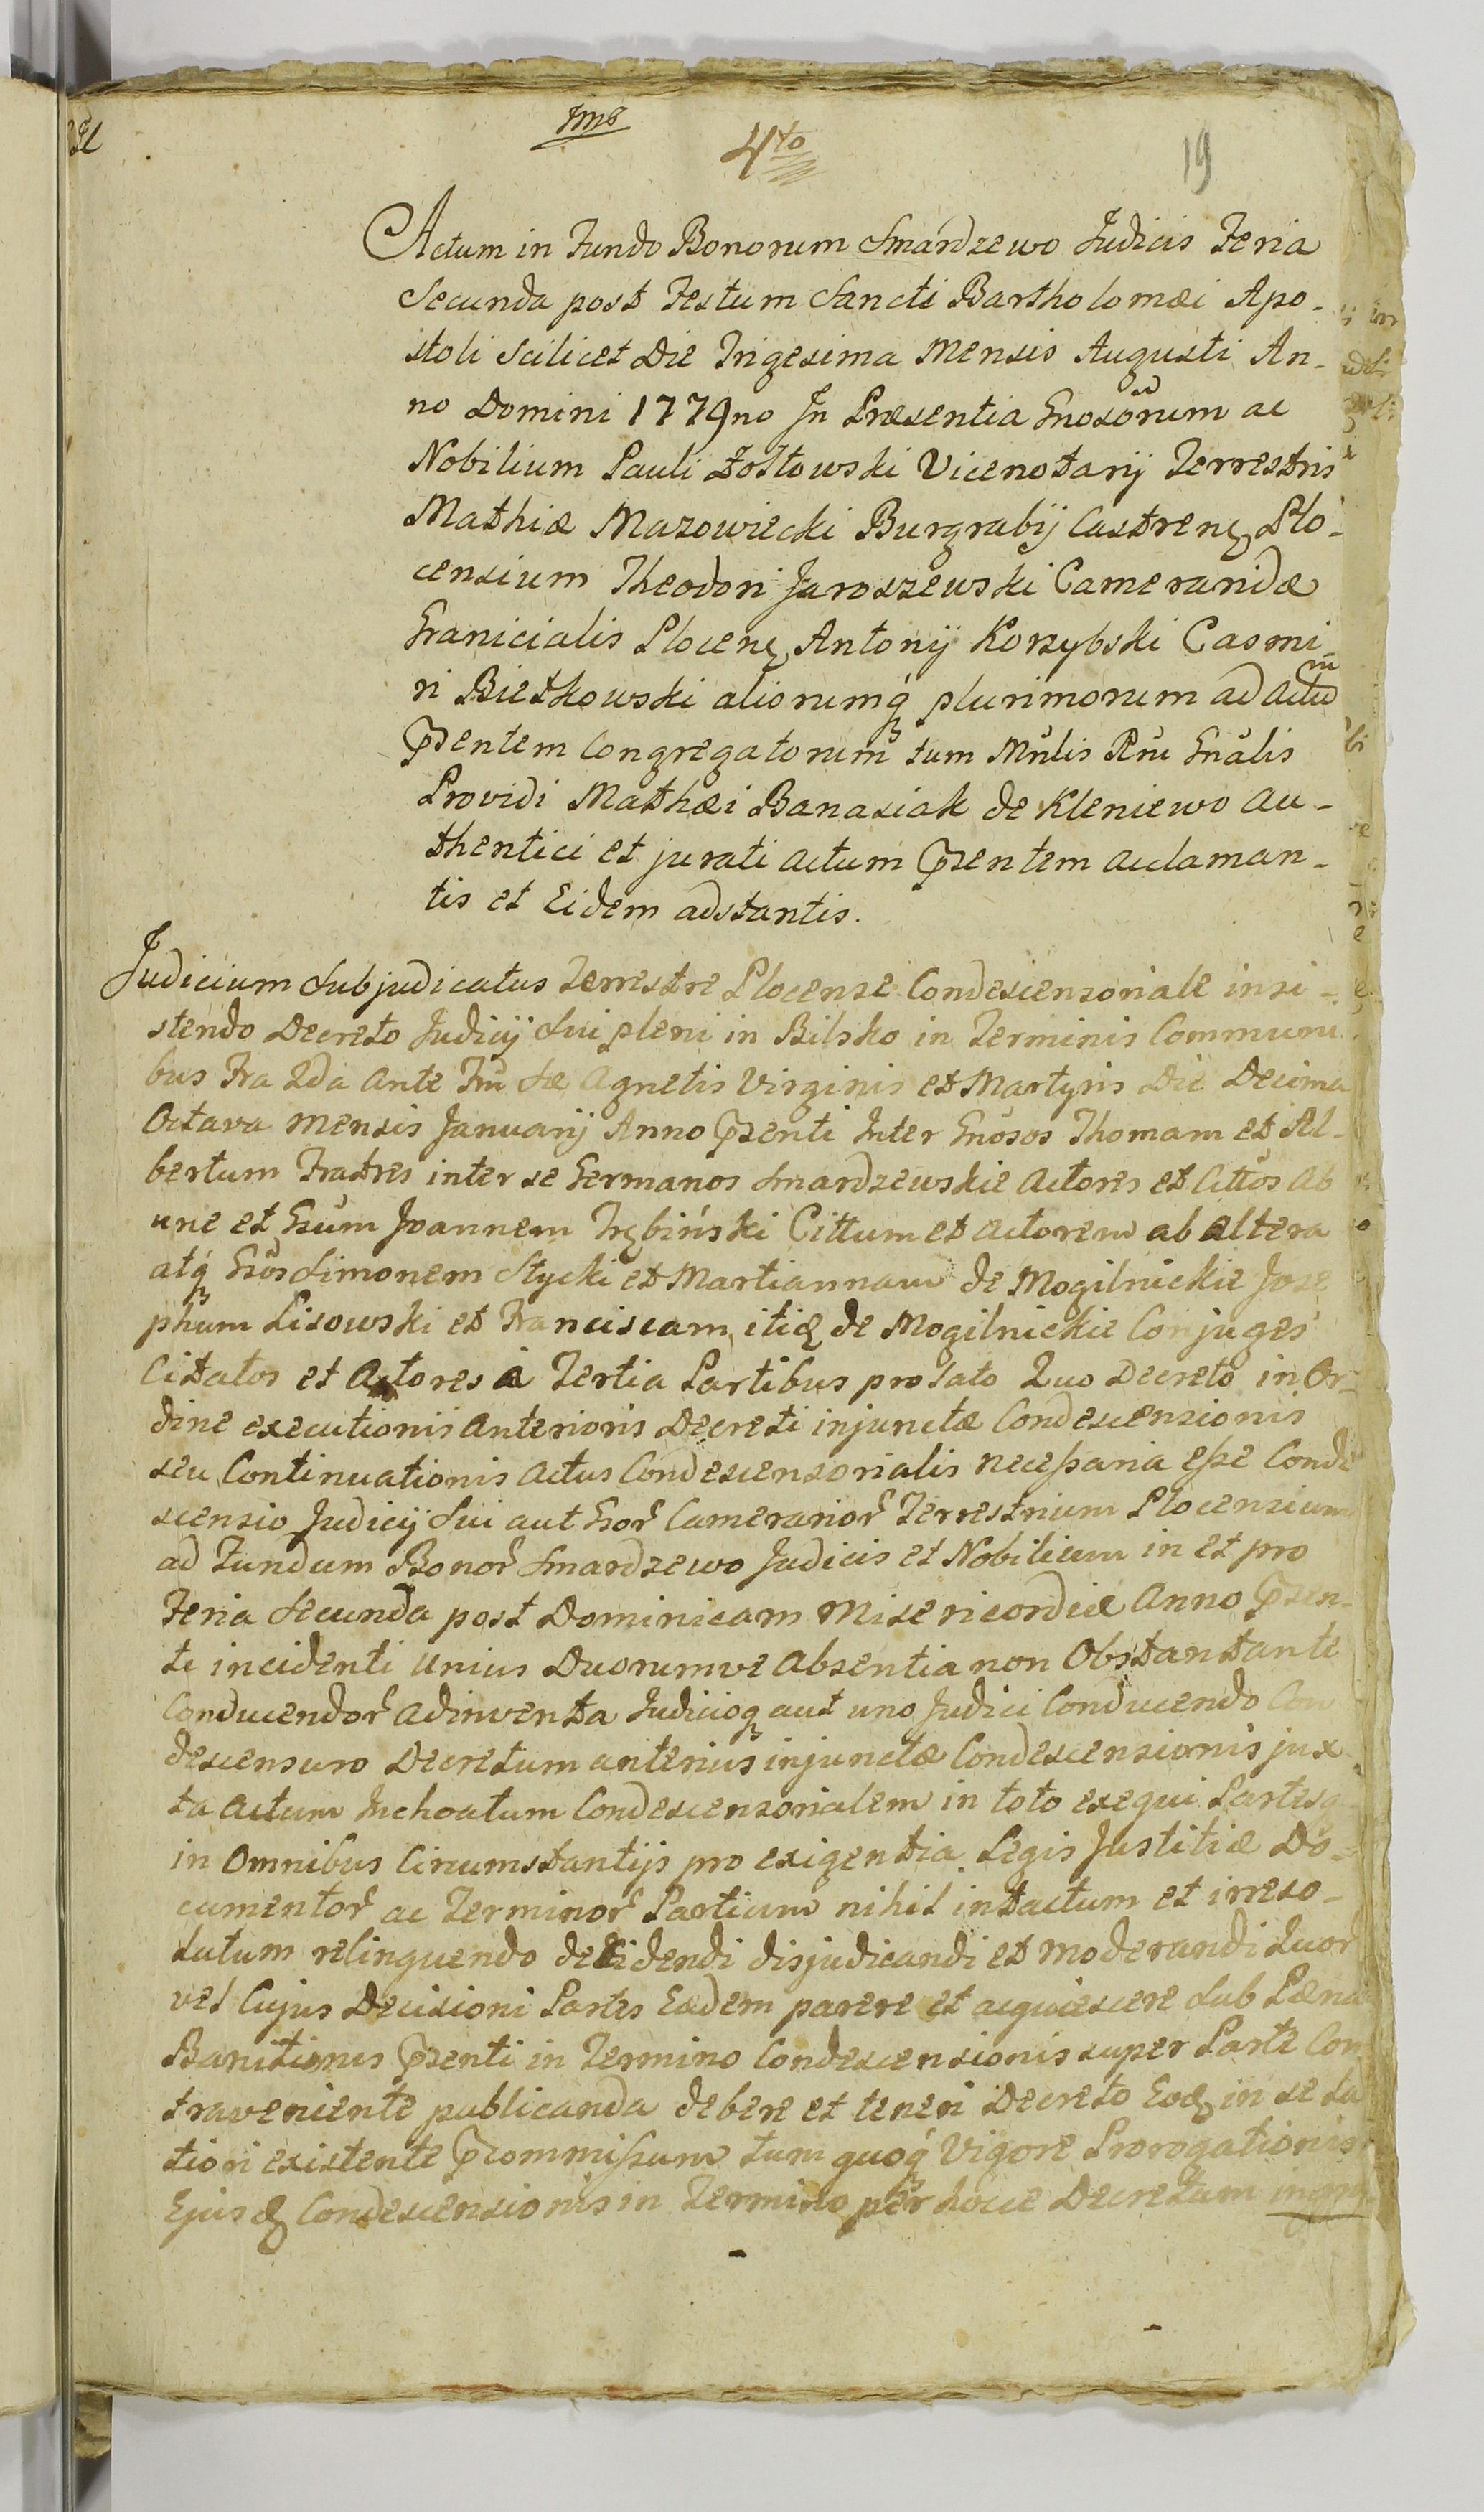 4to
19
Actum in Fundo Bonorum Smardzewo Judicis Feria
Secunda post Festum Sancti Bartholomæi Apo-
stoli Scilicet Die Trigesima Mensis Augusti An-
no Domini 1779no In Præsentia Gnosorum ac
Nobilium Pauli Zołtowski Vicenotarij Terrestris
Mathiæ Mazowiecki Burgrabij Castrenę Plo-
censium Theodori Jaroszewski Cameraridæ
Granicialis Plocenę Antonij Korzybski Casmi-
ri Bietkowski aliorumq́ plurimorum ad actum
Pzentem Congregatorum tum Mnlis Rni Gnalis
Providi Mathæi Banasiak de Kleniewo au-
thentici et jurati actum Pzentem aclaman-
tis et Eidem adstantis.
Judicium Subjudicatus Terrestre Plocense Condescensoriale insi-
stendo Decreto Judicij Sui pleni in Bilsko in Terminis Communi
bus Fra 2da ante Fm Sæ Agnetis Virginis et Martyris Die Decima
Octava mensis Januarij Anno Pzenti Inter Gnosos Thomam et Al-
bertum Fratres inter se Germanos Smardzewskie Actores et Cittos ab
une et Gsum Joannem Trębiński Cittum et actorem ab altera
atq́ Gsos Simonem Stycki et Martiannam de Mogilnickie Jose
phum Lisowski et Franciscam, itię de Mogilnickie Conjuges
Citatos et Actores à Tertia Partibus prolato Quo Decreto in Or-
dine executionis anterioris Decreti injunctæ Condescensionis
seu Continuationis actus Condescensorialis necessaria esse Conde
scensio Judicij Sui aut Gor Camerarior Terrestrium Plocensium
ad Fundum Bonor Smardzewo Judicis et Nobilium in et pro
Feria Secunda post Dominicam Misericordiæ Anno Pzen-
ti incidenti unius Duorumve absentia non Obstantante
Conducendor adinventa Judicioq aut uno Judici Conducendo Con
descensuro Decretum anterius injunctæ Condescensionis jux
ta actum Inchoatum Condescensorialem in toto exequi Partesq
in Omnibus Circumstantijs pro exigentia Legis Justitiæ Do-
cumentor ac Terminor Partium nihil intactum et irreso-
lutum relinquendo decidendi disjudicandi et moderandi Quor
vel Cujus Decisioni Partes Eædem parere et acquiescere sub Pæna
Banitionis Pzenti in Termino Condescensionis super Parte Con
traveniente publicanda debere et teneri Decreto Eodę in se la
tiori existente Pzommissum tum quoq́ Vigore Prorogationis
Ejusdę Condescensionis in Termino per hocce Decretum